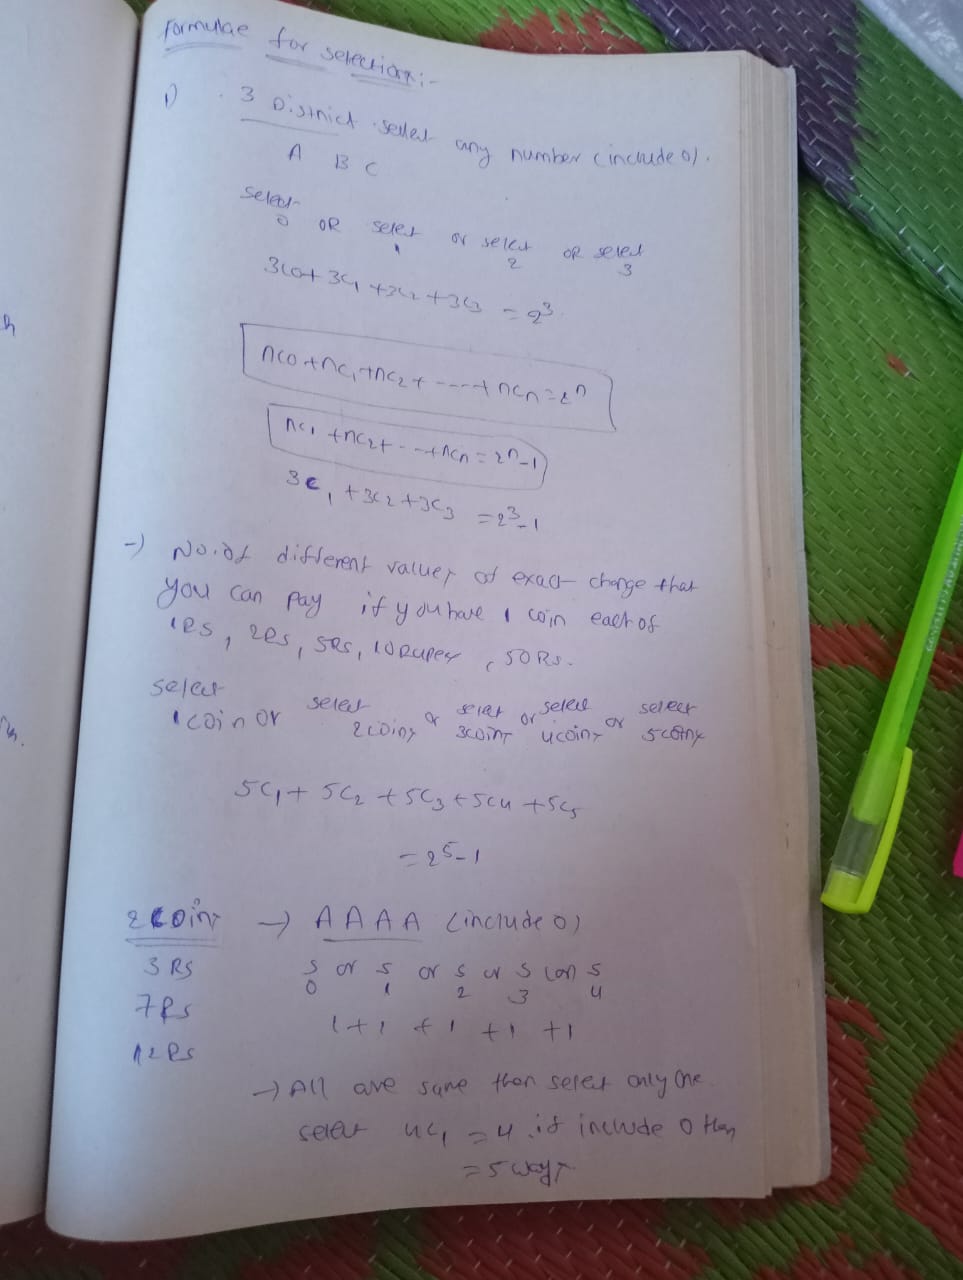 Formulae for selection:-
1) 3 Distnict select any number (include 0).
A B C
select 0 OR select 1 or select 2 OR select 3
3C0+ 3C1 +3C2 +3C3 = 2^3.
nC0 + nC1 + nC2 + ----+ nCn = 2^n
nC1 + nC2+ - - +nCn = 2^n-1
3C1 + 3C2 + 3C3 = 2^3-1
-) No. of different values of exact change that
you can pay if you have 1 coin each of
1RS, 2RS, 5RS, 10 Rupees, 50 Rs.
select 1 coin or select 2 coins or select 3 coins or select 4 coins or select 5 coins
5C1+ 5C2 + 5C3 + 5C4 + 5C5
= 2^5-1
2 coins → A A A A (include 0)
3 RS S 0 or S 1 or S 2 or S 3 S 4
7 RS 1+1 +1 +1 +1
12 RS
→ All are same then select only one
select 4C1 = 4. if include 0 then
= 5 ways